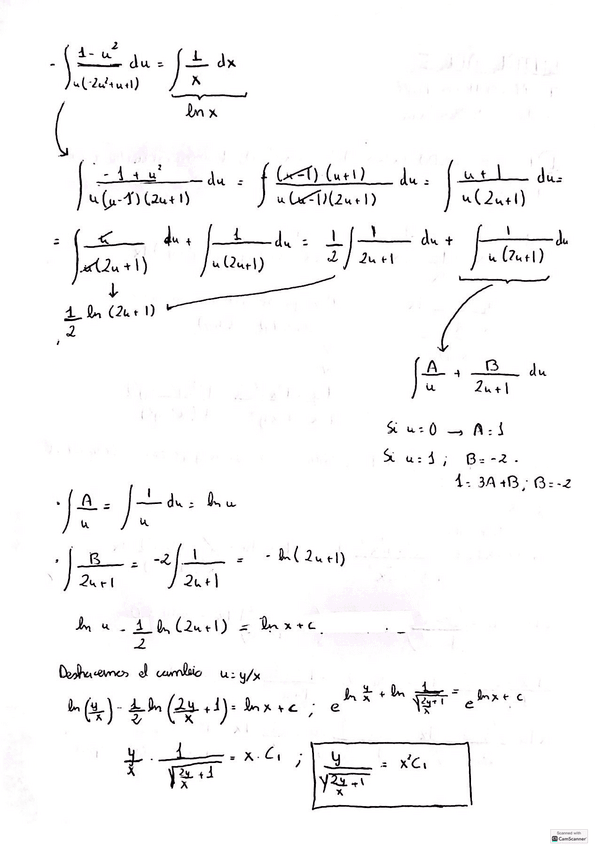 - ∫ (1 - u²)/(u(-2u²+u+1)) du = ∫ 1/x dx
ln x
∫ (-1 + u²)/(u(u-1)(2u+1)) du = ∫ ((u-1)(u+1))/(u(u-1)(2u+1)) du = ∫ (u+1)/(u(2u+1)) du =
= ∫ u/(u(2u+1)) du + ∫ 1/(u(2u+1)) du = 1/2 ∫ 1/(2u+1) du + ∫ 1/(u(2u+1)) du
↓
1/2 ln (2u+1)
∫ A/u + B/(2u+1) du
Si u=0 → A=1
Si u=1; B=-2.
1=3A+B; B=-2
· ∫ A/u = ∫ 1/u du = ln u
· ∫ B/(2u+1) = -2 ∫ 1/(2u+1) = - ln(2u+1)
ln u - 1/2 ln (2u+1) = ln x + c
Deshacemos el cambio u=y/x
ln(y/x) - 1/2 ln (2y/x + 1) = ln x + c; e^(ln y/x + ln 1/√(2y/x+1)) = e^(ln x + c)
y/x · 1/√(2y/x + 1) = x · C₁; y/√(2y/x + 1) = x²C₁
Scanned with
CamScanner